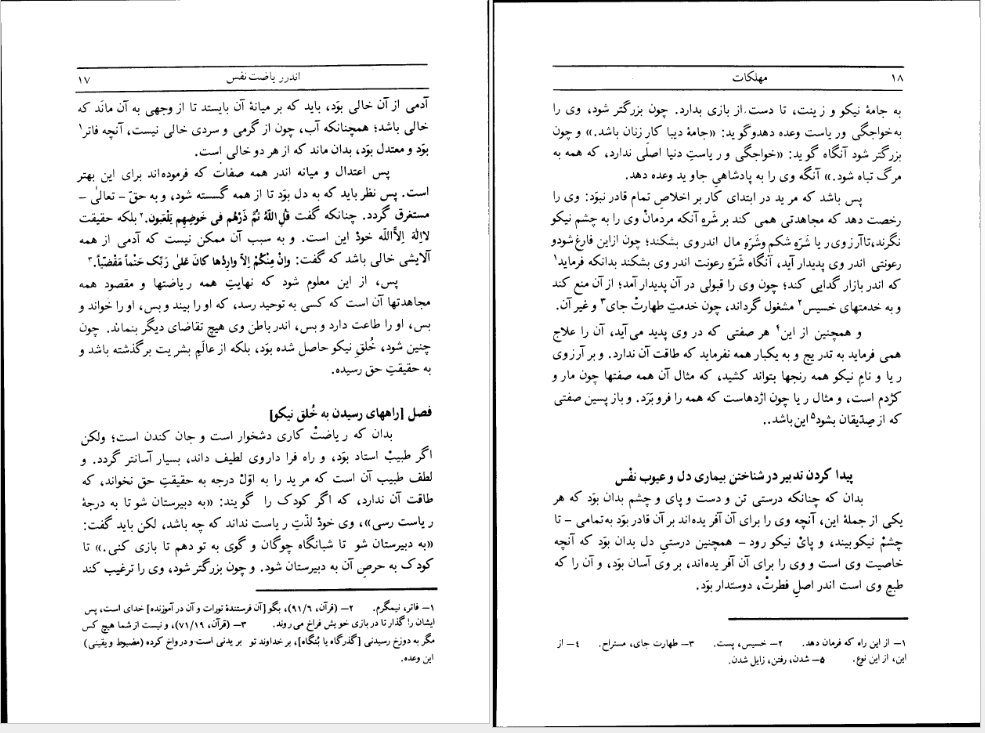 اندر ریاضت نفس ۱۷
آدمی از آن خالی بوَد، باید که بر میانهٔ آن بایستد تا از وجهی به آن مانَد که
خالی باشد؛ همچنانکه آب، چون از گرمی و سردی خالی نیست، آنچه فاتر۱
بوَد و معتدل بوَد، بدان ماند که از هر دو خالی است.
پس اعتدال و میانه اندر همه صفات که فرموده‌اند برای این بهتر
است. پس نظر باید که به دل بوَد تا از همه گسسته شود، و به حقّ – تعالیٰ –
مستغرق گردد. چنانکه گفت قُلِ اللّهُ ثُمَّ ذَرْهُم فی خَوضِهِم یَلْعَبون.۲ بلکه حقیقت
لااِلٰهَ اِلاَّ‌اللّه خودْ این است. و به سبب آن ممکن نیست که آدمی از همه
آلایشی خالی باشد که گفت: وَاِنْ مِنْکُمْ اِلاّ وارِدُها کانَ عَلیٰ رَبِّک حَتْماً مَقْضیّاً.۳
پس، از این معلوم شود که نهایتِ همه ریاضتها و مقصود همه
مجاهدتها آن است که کسی به توحید رسد، که او را بیند و بس، او را خواند و
بس، او را طاعت دارد و بس، اندر باطن وی هیچ تقاضای دیگر بنماند. چون
چنین شود، خُلقِ نیکو حاصل شده بوَد، بلکه از عالَمِ بشریت برگذشته باشد و
به حقیقتِ حق رسیده.
فصل [راههای رسیدن به خُلق نیکو]
بدان که ریاضتْ کاری دشخوار است و جان کندن است؛ ولکن
اگر طبیبْ استاد بوَد، و راه فرا داروی لطیف داند، بسیار آسانتر گردد. و
لطف طبیب آن است که مرید را به اوّلْ درجه به حقیقتِ حق نخواند، که
طاقت آن ندارد، که اگر کودک را گویند: «به دبیرستان شو تا به درجهٔ
ریاست رسی»، وی خودْ لذّتِ ریاست نداند که چه باشد، لکن باید گفت:
«به دبیرستان شو تا شبانگاه چوگان و گوی به تو دهم تا بازی کنی.» تا
کودک به حرصِ آن به دبیرستان شود. و چون بزرگتر شود، وی را ترغیب کند
۱– فاتر، نیمگرم. ۲– (قرآن، ۹۱/۶)، بگو [آن فرستندهٔ تورات و آن در آموزنده] خدای است، پس
ایشان را گذار تا در بازی خویش فراخ می‌روند. ۳– (قرآن، ۷۱/۱۹)، و نیست از شما هیچ کس
مگر به دوزخ رسیدنی [گذرگاه یا بُنگاه]، بر خداوند تو بریدنی است و درواخ کرده (مضبوط و یقینی)
این وعده.
۱۸ مهلکات
به جامهٔ نیکو و زینت، تا دست از بازی بدارد. چون بزرگتر شود، وی را
به خواجگی و ریاست وعده دهد و گوید: «جامهٔ دیبا کار زنان باشد.» و چون
بزرگتر شود آنگاه گوید: «خواجگی و ریاستِ دنیا اصلی ندارد، که همه به
مرگ تباه شود.» آنگه وی را به پادشاهیِ جاوید وعده دهد.
پس باشد که مرید در ابتدای کار بر اخلاصِ تمام قادر نبوَد: وی را
رخصت دهد که مجاهدتی همی کند بر شَرهِ آنکه مردمانْ وی را به چشمِ نیکو
نگرند، تا آرزوی ریا شَرَهِ شکم و شَرَهِ مال اندر وی بشکند؛ چون از این فارغ شود و
رعونتی اندر وی پدیدار آید، آنگاه شَرَهِ رعونت اندر وی بشکند بدانکه فرماید۱
که اندر بازار گدایی کند؛ چون وی را قبولی در آن پدیدار آمد؛ از آن منع کند
و به خدمتهای خسیس۲ مشغول گرداند، چون خدمتِ طهارتْ جای۳ و غیر آن.
و همچنین از این۴ هر صفتی که در وی پدید می‌آید، آن را علاج
همی فرماید به تدریج و به یکبار همه نفرماید که طاقت آن ندارد. و بر آرزوی
ریا و نامِ نیکو همه رنجها بتواند کشید، که مثال آن همه صفتها چون مار و
کژدم است، و مثال ریا چون اژدهاست که همه را فرو بَرَد. و باز پسین صفتی
که از صدّیقان بشود۵ این باشد..
پیدا کردن تدبیر در شناختن بیماری دل و عیوب نفْس
بدان که چنانکه درستی تن و دست و پای و چشم بدان بوَد که هر
یکی از جملهٔ این، آنچه وی را برای آن آفریده‌اند بر آن قادر بوَد به تمامی – تا
چشمْ نیکو بیند، و پایْ نیکو رود – همچنین درستیِ دل بدان بوَد که آنچه
خاصیت وی است و وی را برای آن آفریده‌اند، بر وی آسان بوَد، و آن را که
طبع وی است اندر اصلِ فطرتْ، دوستدار بوَد.
۱– از این راه که فرمان دهد. ۲– خسیس، پست. ۳– طهارت جای، مستراح. ۴– از
این، از این نوع. ۵– شدن، رفتن، زایل شدن.